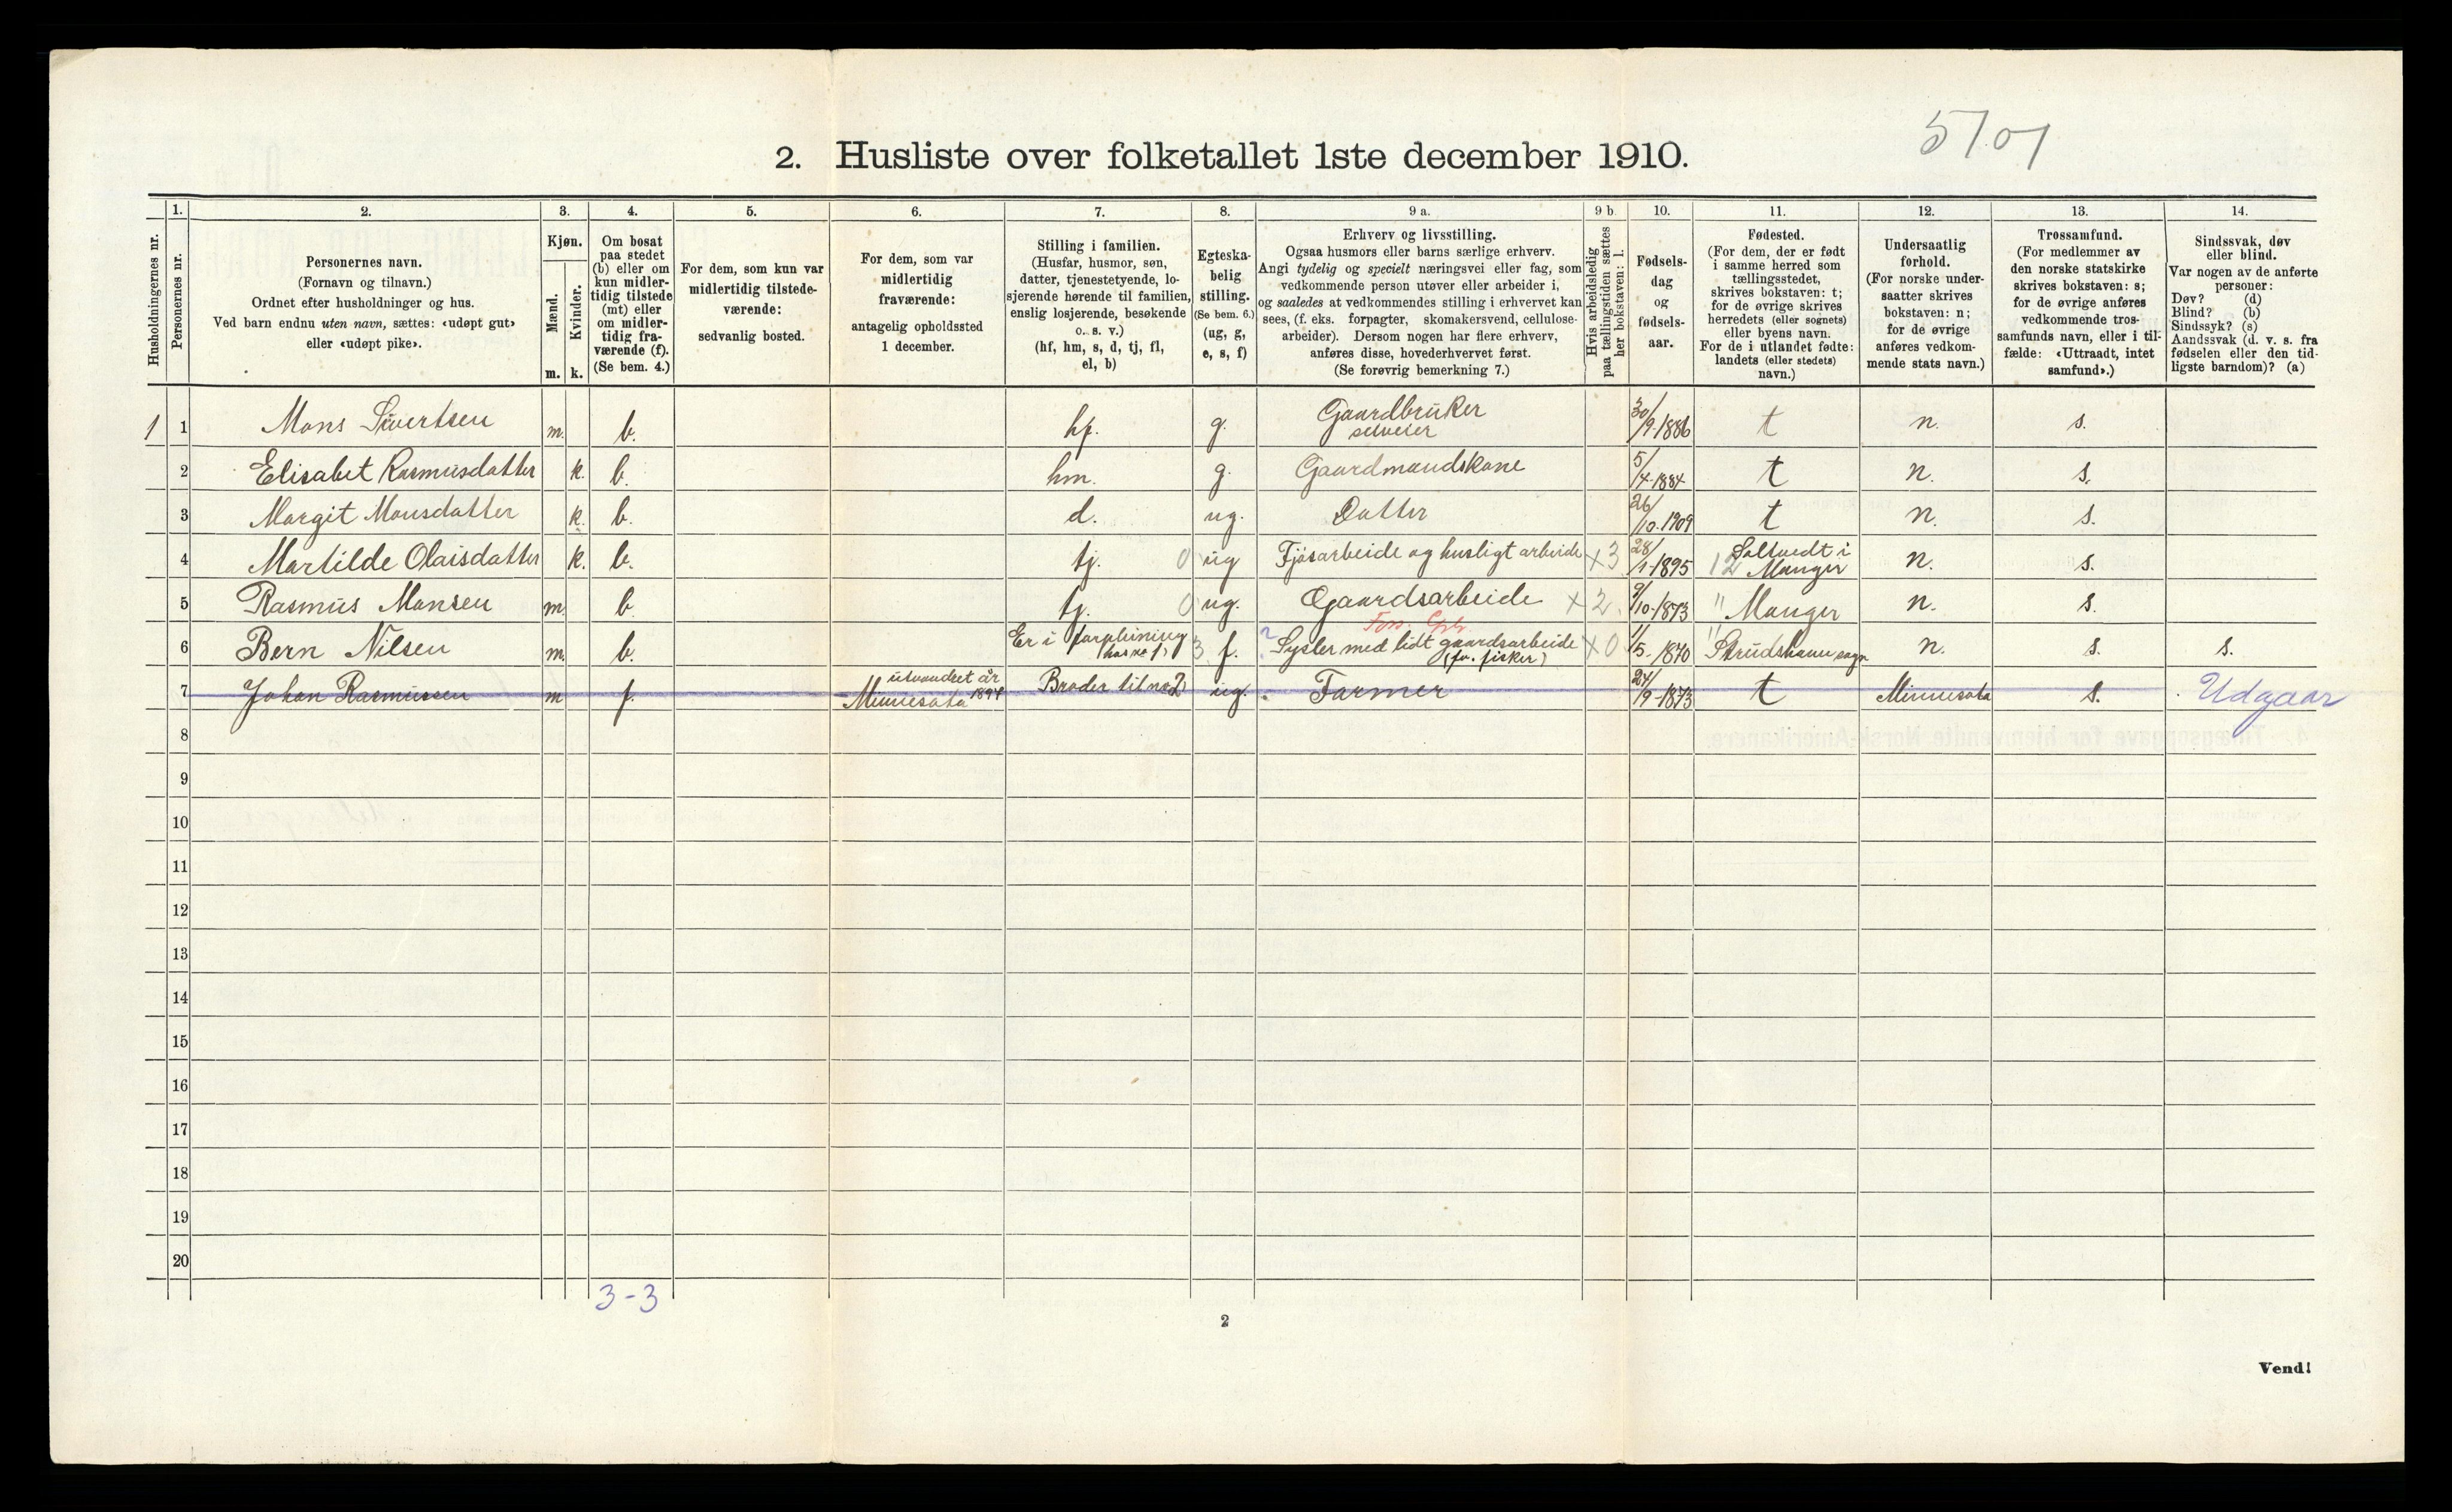 57.07
2. Husliste over folketallet 1ste december 1910.
Husholdningernes nr.
1. Personernes nr.
2. Personernes navn.
(Fornavn og tilnavn.)
Ordnet efter husholdninger og hus.
Ved barn endnu uten navn, sættes: «udøpt gut»
eller «udøpt pike».
3. Kjøn.
Mænd. m.
Kvinder. k.
4. Om bosat
paa stedet
(b) eller om
kun midler-
tidig tilstede
(mt) eller
om midler-
tidig fra-
værende (f).
(Se bem. 4.)
5. For dem, som kun var
midlertidig tilstede-
værende:
sedvanlig bosted.
6. For dem, som var
midlertidig
fraværende:
antagelig opholdssted
1 december.
7. Stilling i familien.
(Husfar, husmor, søn,
datter, tjenestetyende, lo-
sjerende hørende til familien,
enslig losjerende, besøkende
o. s. v.)
(hf, hm, s, d, tj, fl,
el, b)
8. Egteska-
belig
stilling.
(Se bem. 6.)
(ug, g,
e, s, f)
9 a. Erhverv og livsstilling.
Ogsaa husmors eller barns særlige erhverv.
Angi tydelig og specielt næringsvei eller fag, som
vedkommende person utøver eller arbeider i,
og saaledes at vedkommendes stilling i erhvervet kan
sees, (f. eks. forpagter, skomakersvend, cellulose-
arbeider). Dersom nogen har flere erhverv,
anføres disse, hovederhvervet først.
(Se forøvrig bemerkning 7.)
9 b. Hvis arbeidsledig
paa tællingstiden sættes
her bokstaven: l.
10. Fødsels-
dag
og
fødsels-
aar.
11. Fødested.
(For dem, der er født
i samme herred som
tællingsstedet,
skrives bokstaven: t;
for de øvrige skrives
herredets (eller sognets)
eller byens navn.
For de i utlandet fødte:
landets (eller stedets)
navn.)
12. Undersaatlig
forhold.
(For norske under-
saatter skrives
bokstaven: n;
for de øvrige
anføres vedkom-
mende stats navn.)
13. Trossamfund.
(For medlemmer av
den norske statskirke
skrives bokstaven: s;
for de øvrige anføres
vedkommende tros-
samfunds navn, eller i til-
fælde: «Uttraadt, intet
samfund».)
14. Sindssvak, døv
eller blind.
Var nogen av de anførte
personer:
Døv? (d)
Blind? (b)
Sindssyk? (s)
Aandssvak (d. v. s. fra
fødselen eller den tid-
ligste barndom)? (a)
1 1 Mons Sivertsen m. b. hf. g. Gaardbruker selveier 30/9-1886 t n. s.
2 Elisabet Rasmusdatter k. b. hm. g. Gaardmandskone 5/4-1884 t n. s.
3 Margit Monsdatter k. b. d. ug. Datter 26/10-1909 t n. s.
4 Martilde Olaisdatter k. b. tj. 0 ug Fjøsarbeide og husligt arbeide x3 28/1-1895 12 Soltvedt i Manger n. s.
5 Rasmus Monsen m. b. tj. 0 ug. Gaardsarbeide x2. 9/10-1873 " Manger n. s.
6 Bern Nilsen m. b. Er i forpleining hos no 1) 3 f. ? Sysler med lidt gaardsarbeide (fv. fisker) x0 1/5-1870 " Strudshavn sogn n. s. s.
7 Johan Rasmussen m f. utvandret år 1894 Minnesota Broder til no 2) ug. Farmer 24/9-1873 t Minnesota s. Udgaar
8
9
10
11
12
13
14
15
16
17
18
19
20
3-3
2
Vend!